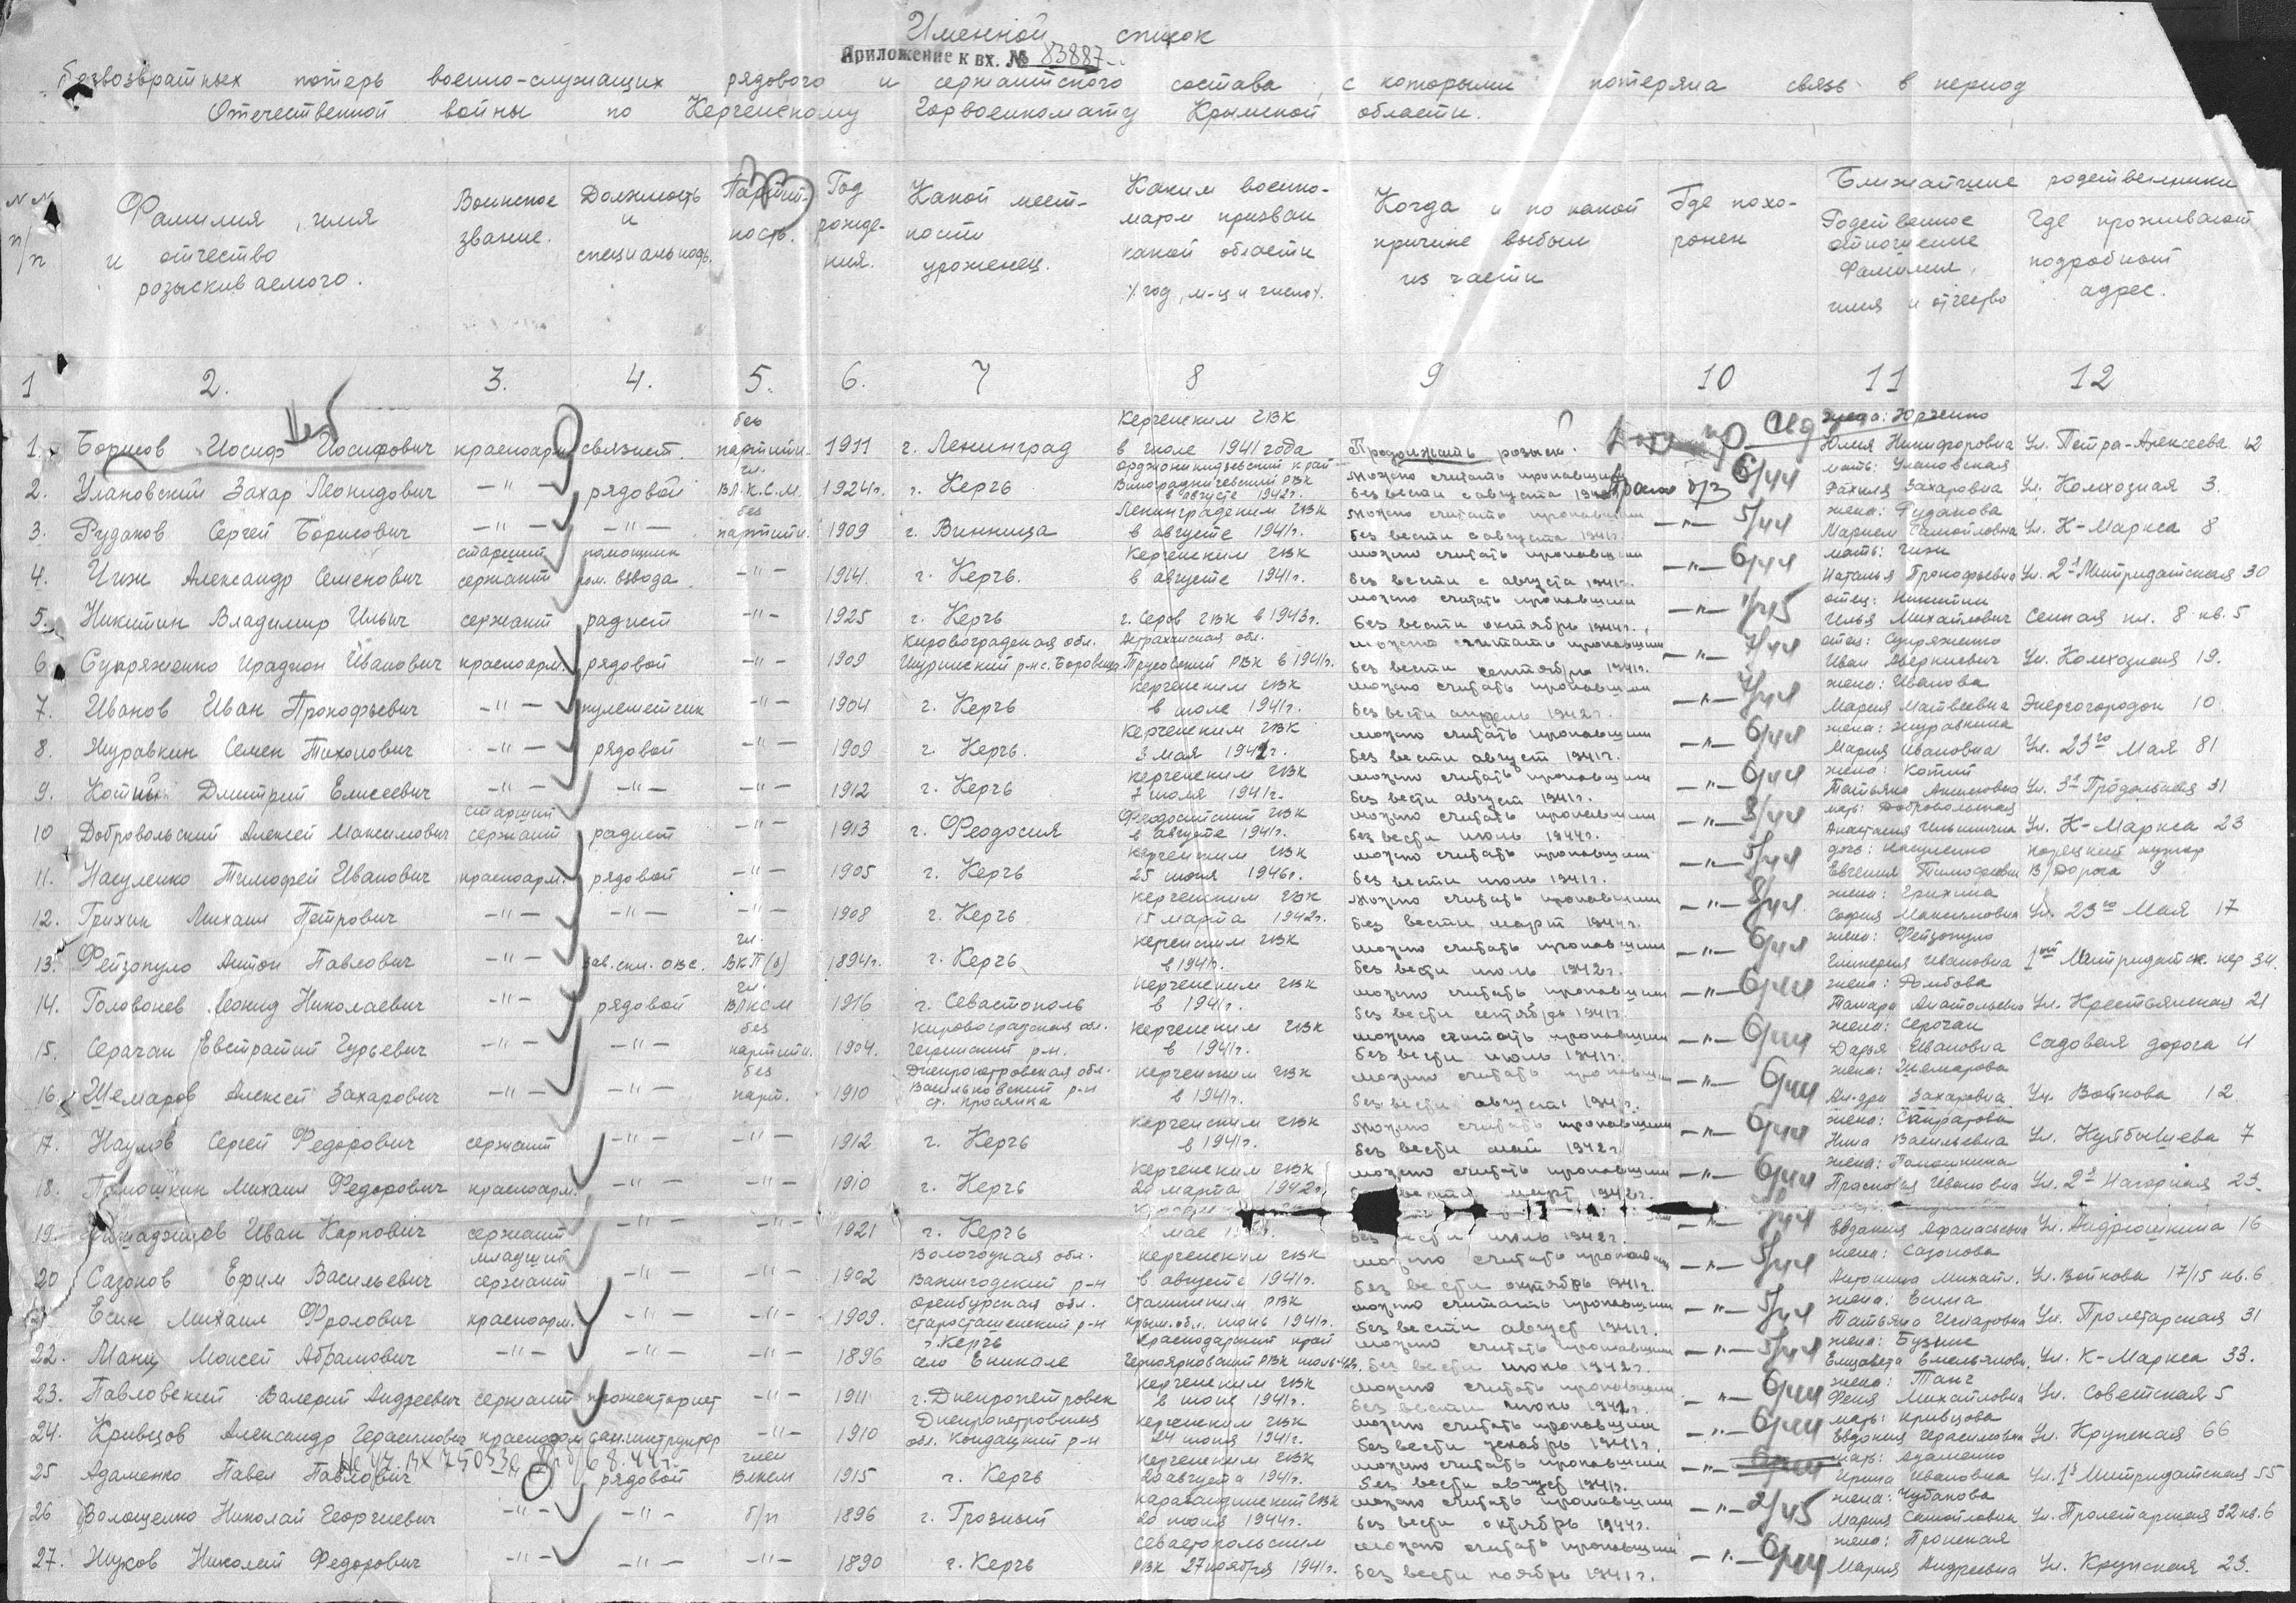 Именной список
Приложение к вх. № 83887
Безвозвратных потерь военно-служащих рядового и сержантского состава, с которыми потеряна связь в период
Отечественной войны по Керченскому Горвоенкомату Крымской области.
№ № п/п
Фамилия, имя и отчество розыскиваемого.
Воинское звание.
Должность и специальность.
Партийность.
Год рождения.
Какой местности уроженец.
Каким военкоматом призван какой области /год, м-ц и число/.
Когда и по какой причине выбыл из части
Где похоронен
Ближайшие родственники
Родственное отношение Фамилия, имя и отчество
Где проживают подробный адрес.
1 2. 3. 4. 5. 6. 7 8 9 10 11 12
1. Борисов Иосиф Иосифович красноарм. связист. без партийн. 1911 г. Ленинград Керченским ГВК в июле 1941 года Продолжать розыск. жена: Юрженко Юлия Никифоровна Ул. Петра-Алексеева 42
2. Улановский Захар Леонидович —"— рядовой чл. ВЛ.К.С.М. 1924г. г. Керчь Орджоникидзевский край РВК в августе 1942г. Можно считать пропавшим без вести с августа 6/44 мать: Улановская Рахиль Захаровна Ул. Колхозная 3.
3. Рудаков Сергей Борисович —"— —"— без партийн. 1909 г. Винница Ленинградским ГВК в августе 1941г. можно считать пропавшим без вести с августа 1941г. —"— 5/44 жена: Рудакова Мариам Самойловна Ул. К-Маркса 8
4. Чиж Александр Семенович старший сержант помощник ком. взвода —"— 1914. г. Керчь. Керченским ГВК в августе 1941г. можно считать пропавшим без вести с августа 1941г. —"— 6/44 мать: Чиж Наталья Прокофьевна Ул. 2я Митридатская 30
5. Никитин Владимир Ильич сержант радист —"— 1925 г. Керчь г. Серов ГВК в 1943г. можно считать пропавшим без вести октябрь 1944г. —"— отец: Никитин Илья Михайлович Сенная пл. 8 кв. 5
6 Супряженко Ирадион Иванович красноарм. рядовой —"— 1909 Кировоградская обл. р-н с. Боровица Астраханская обл. Трусовский РВК в 1941г. можно считать пропавшим без вести сентябрь 1941г. —"— 7/44 отец: Супряженко Иван Аверкиевич Ул. Колхозная 19.
7. Иванов Иван Прокофьевич —"— пулеметчик —"— 1904 г. Керчь Керченским ГВК в июле 1941г. можно считать пропавшим без вести апрель 1942г. —"— 7/44 жена: Иванова Мария Матвеевна Энергогородок 10.
8. Журавкин Семен Тихонович —"— рядовой —"— 1909 г. Керчь. Керченским ГВК 3 мая 1941г. можно считать пропавшим без вести август 1941г. —"— 6/44 жена: Журавкина Мария Ивановна Ул. 23го Мая 81
9. Дмитрий Елисеевич —"— —"— —"— 1912 г. Керчь Керченским ГВК 7 июля 1941г. можно считать пропавшим без вести август 1941г. —"— 6/44 жена: Татьяна Ул. 3я Продольная 31
10 Добровольский Алексей Максимович старший сержант радист —"— 1913 г. Феодосия Феодосийский ГВК в августе 1941г. можно считать пропавшим без вести июль 1944г. —"— 8/44 мать: Добровольская Анастасия Ильинична Ул. К-Маркса 23
11. Насуленко Тимофей Иванович красноарм. рядовой —"— 1905 г. Керчь Керченским ГВК 25 июня можно считать пропавшим без вести июль 1941г. —"— 5/44 дочь: Евгения Тимофеевна В/Дорога 9
12. Грихин Михаил Петрович —"— —"— —"— 1908 г. Керчь. Керченским ГВК 15 марта 1942г. можно считать пропавшим без вести март —"— 8/44. жена: Грихина София Максимовна Ул. 23го Мая 17
13. Фейзопуло Антон Павлович —"— зав. скл. ОВС. чл. ВКП(б) 1894г. г. Керчь Керченским ГВК в 1941г. можно считать пропавшим без вести июль 1942г. —"— 6/44 жена: Фейзопуло Гликерия Ивановна 1ый Митридатск. пер 34.
14. Головонев Леонид Николаевич —"— рядовой чл. ВЛКСМ 1916 г. Севастополь Керченским ГВК в 1941г. можно считать пропавшим без вести сентябрь 1941г. —"— 6/44 жена: Тамара Анатольевна Ул. Крестьянская 21
15. Серачан Евстратий Гурьевич —"— —"— без партийн. 1904. Кировоградская обл. р-н. Керченским ГВК в 1941г. можно считать пропавшим без вести июль 1941г. —"— 6/44 жена: Серачан Дарья Ивановна Садовая дорога 4
16. Шемаров Алексей Захарович —"— —"— без парт. 1910 Днепропетровская обл. Васильковский р-н ст. Просянка Керченским ГВК в 1941г. можно считать пропавшим без вести август —"— 6/44 жена: Шемарова Ал-дра Захаровна Ул. Войкова 12
17. Наумов Сергей Федорович сержант —"— —"— 1912 г. Керчь Керченским ГВК в 1941г. можно считать пропавшим без вести май 1942г —"— 6/44 жена: Нина Васильевна Ул. Куйбышева 7
18. Памошкин Михаил Федорович красноарм. —"— —"— 1910 г. Керчь Керченским ГВК 20 марта 1942г. можно считать пропавшим без вести март 1942г. —"— 6/44 жена: Памошкина Прасковья Ивановна Ул. 2я Нагорная 23.
19. Иван Карпович сержант —"— —"— 1921 г. Керчь мае без вести июль 1942г. —"— 7/44 Евдокия Афанасьевна Ул. Андрюшкина 16
20 Сазонов Ефим Васильевич младший сержант —"— —"— 1902 Вологодская обл. р-н Керченским ГВК в августе 1941г. можно считать пропавшим без вести октябрь 1941г. —"— 5/44 жена: Сазонова Антонина Михайл. Ул. Войкова 17/15 кв. 6
21 Есин Михаил Фролович красноарм. —"— —"— 1909. Оренбургская обл. р-н Сталинским РВК крым. обл. июнь 1941г. можно считать пропавшим без вести август 1941г. —"— 5/44 жена: Есина Татьяна Ул. Пролетарская 31
22. Манц Моисей Абрамович —"— —"— —"— 1896 г. Керчь село Еникале Краснодарский край РВК можно считать пропавшим без вести июнь 1942г. —"— 5/44 жена: Елизавета Емельяновн. Ул. К-Маркса 33.
23. Павловский Валерий Андреевич сержант прожекторист —"— 1911 г. Днепропетровск Керченским ГВК в июне 1941г. можно считать пропавшим без вести июнь 1942г. —"— 6/44 жена: Танг Феня Михайловна Ул. Советская 5
24. Кривцов Александр Герасимович красноарм санинструктор —"— 1910 Днепропетровская обл. р-н Керченским ГВК 24 июня 1941г. можно считать пропавшим без вести декабрь 1941г. —"— 6/44 мать: Кривцова Евдокия Герасимовна Ул. Крупская 66
25 Адаменко Павел Павлович рядовой член ВЛКСМ 1915 г. Керчь Керченским ГВК 20 августа 1941г. можно считать пропавшим без вести август 1941г. —"— мать: Адаменко Ирина Ивановна Ул. 1я Митридатская 55
26 Волощенко Николай Георгиевич —"— —"— б/п 1896 г. Грозный Карагандинский ГВК 20 июня 1944г. можно считать пропавшим без вести октябрь 1944г. —"— 2/45 жена: Чубакова Мария Самойловн. Ул. Пролетарская 32 кв. 6
27. Жуков Николай Федорович —"— —"— —"— 1890 г. Керчь Севастопольским РВК 27 ноября 1941г. можно считать пропавшим без вести ноябрь 1941г. —"— 6/44 жена: Пронская Мария Андреевна Ул. Крупская 23.